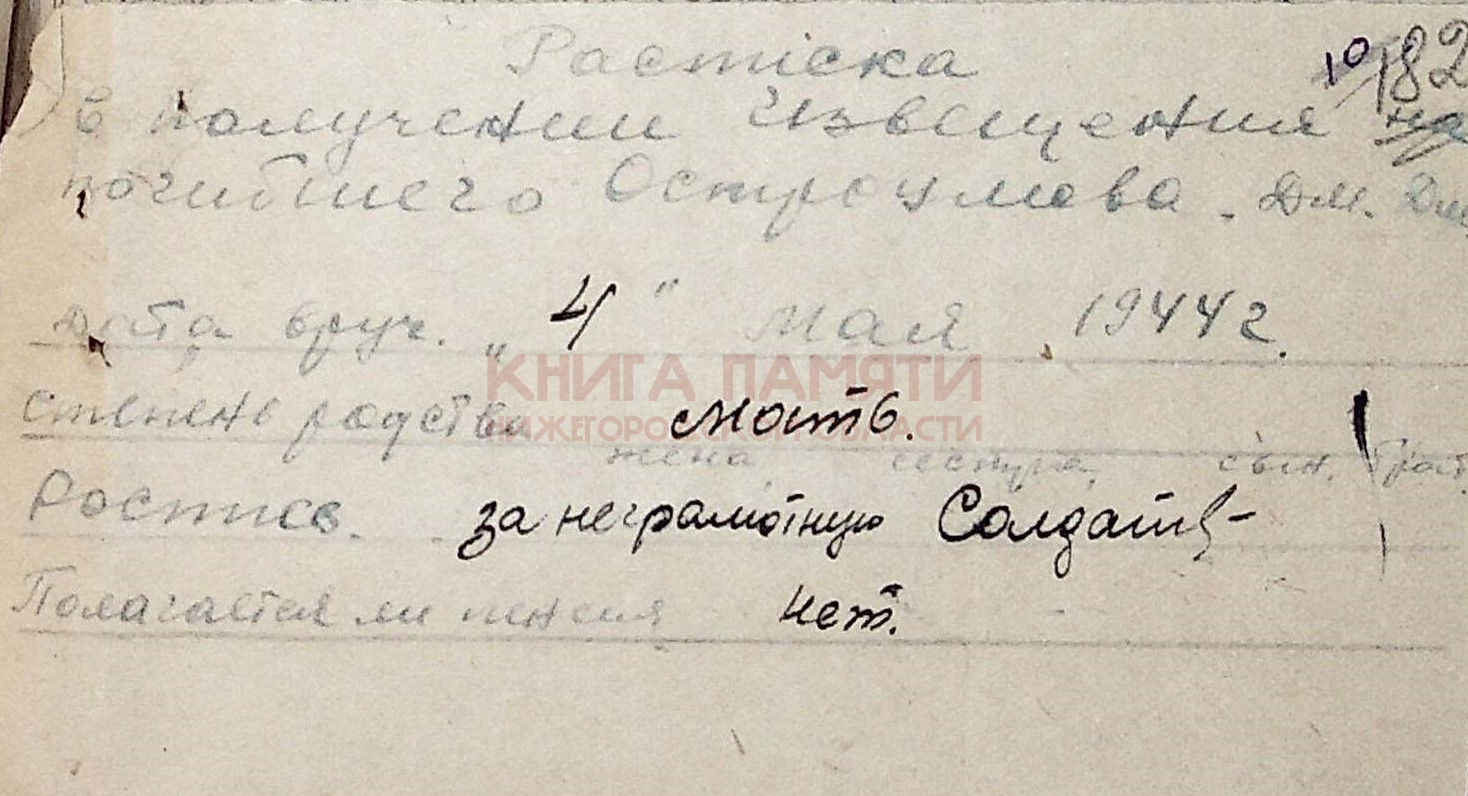 Расписка 10 182
в получении извещения на
погибшего Остроумова. Дм. Дм
Дата вруч. „ 4 " мая 1944 г.
КНИГА ПАМЯТИ
НИЖЕГОРОДСКОЙ ОБЛАСТИ
степень родства мать.
жена, сестра, сын, брат.
Роспись. за неграмотную
Полагается ли пенсия нет.